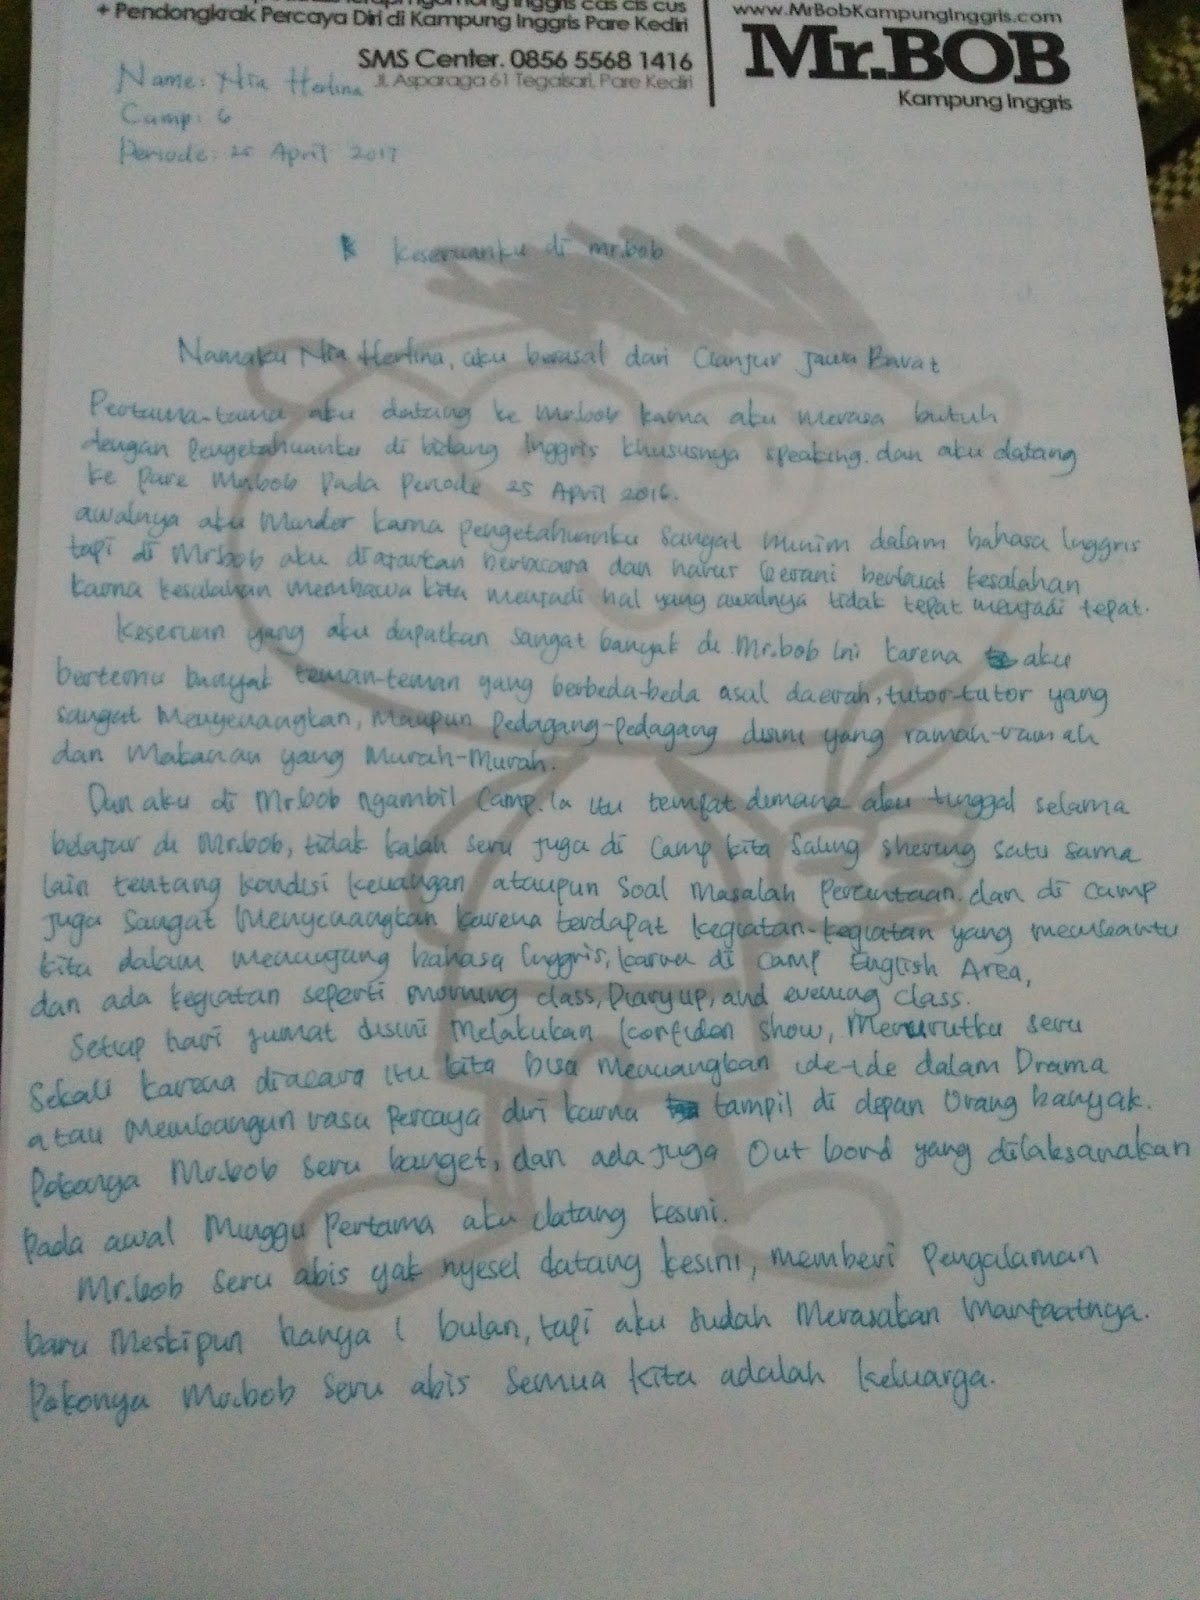 ngomong Inggris cas cis cus
+ Pendongkrak Percaya Diri di Kampung Inggris Pare Kediri
SMS Center. 0856 5568 1416
Jl. Asparaga 61 Tegalsari, Pare Kediri
www.MrBobKampungInggris.com
Mr.BOB
Kampung Inggris
Name: Nia Herlina
Camp: 6
Periode: 25 April 2017
Keseruanku di mr.bob
Namaku Nia Herlina, aku berasal dari Cianjur Jawa Barat
Pertama-tama aku datang ke Mr.bob karna aku merasa butuh
dengan Pengetahuanku di bidang Inggris khususnya speaking. dan aku datang
ke Pare Mr.bob Pada Periode 25 April 2016.
awalnya aku Minder karna pengetahuanku Sangat minim dalam bahasa Inggris
tapi di Mr.bob aku diajarkan berbicara dan harus berani berbuat kesalahan
karna kesalahan membawa kita menjadi hal yang awalnya tidak tepat menjadi tepat.
Keseruan yang aku dapatkan sangat banyak di Mr.bob Ini karena aku
bertemu banyak teman-teman yang berbeda-beda asal daerah, tutor-tutor yang
sangat Menyenangkan, Maupun Pedagang-Pedagang disini yang ramah-ramah
dan Makanan yang Murah-Murah.
Dan aku di Mr.bob ngambil Camp. Ia itu tempat dimana aku tinggal selama
belajar di Mr.bob, tidak kalah seru juga di Camp kita Saling shering satu sama
lain tentang kondisi keuangan ataupun Soal Masalah Percintaan. dan di camp
juga Sangat Menyenangkan karena terdapat kegiatan-kegiatan yang membantu
kita dalam menunjang bahasa Inggris, karna di Camp English Area,
dan ada kegiatan seperti morning class, Diary up, and evening class.
Setiap hari jumat disini Melakukan Confiden show, Menurutku seru
Sekali karena diacara itu kita bisa Menuangkan ide-ide dalam Drama
atau Membangun rasa Percaya diri karna tampil di depan Orang banyak.
Pokonya Mr.bob seru banget, dan ada juga Out bord yang dilaksanakan
Pada awal Minggu Pertama aku datang kesini.
Mr.bob seru abis gak nyesel datang kesini, memberi Pengalaman
baru Meskipun hanya 1 bulan, tapi aku sudah Merasakan Manfaatnya.
Pokonya Mr.bob seru abis semua kita adalah keluarga.